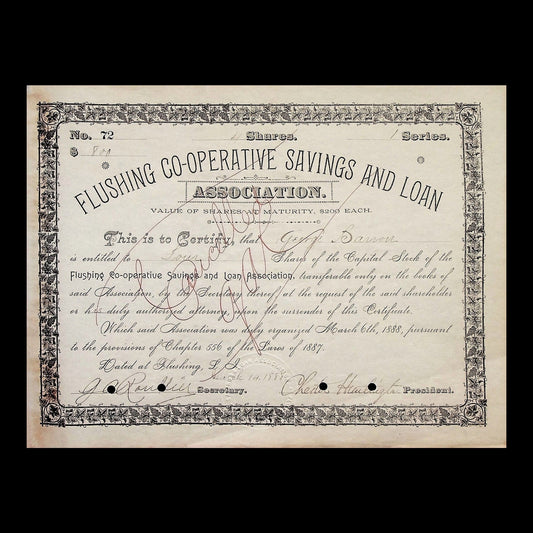 No. 72 4 Shares. 1 Series.
$ 800
FLUSHING CO-OPERATIVE SAVINGS AND LOAN
ASSOCIATION.
VALUE OF SHARES AT MATURITY, $200 EACH.
This is to Certify, that George Barron
is entitled to Four Shares of the Capital Stock of the
Flushing Co-operative Savings and Loan Association, transferable only on the books of
said Association, by the Secretary thereof, at the request of the said shareholder
or his duly authorized attorney upon the surrender of this Certificate.
Which said Association was duly organized March 6th, 1888, pursuant
to the provisions of Chapter 556 of the Laws of 1887.
Dated at Flushing, L. I.
14, 1888
Secretary. President.
Cancelled